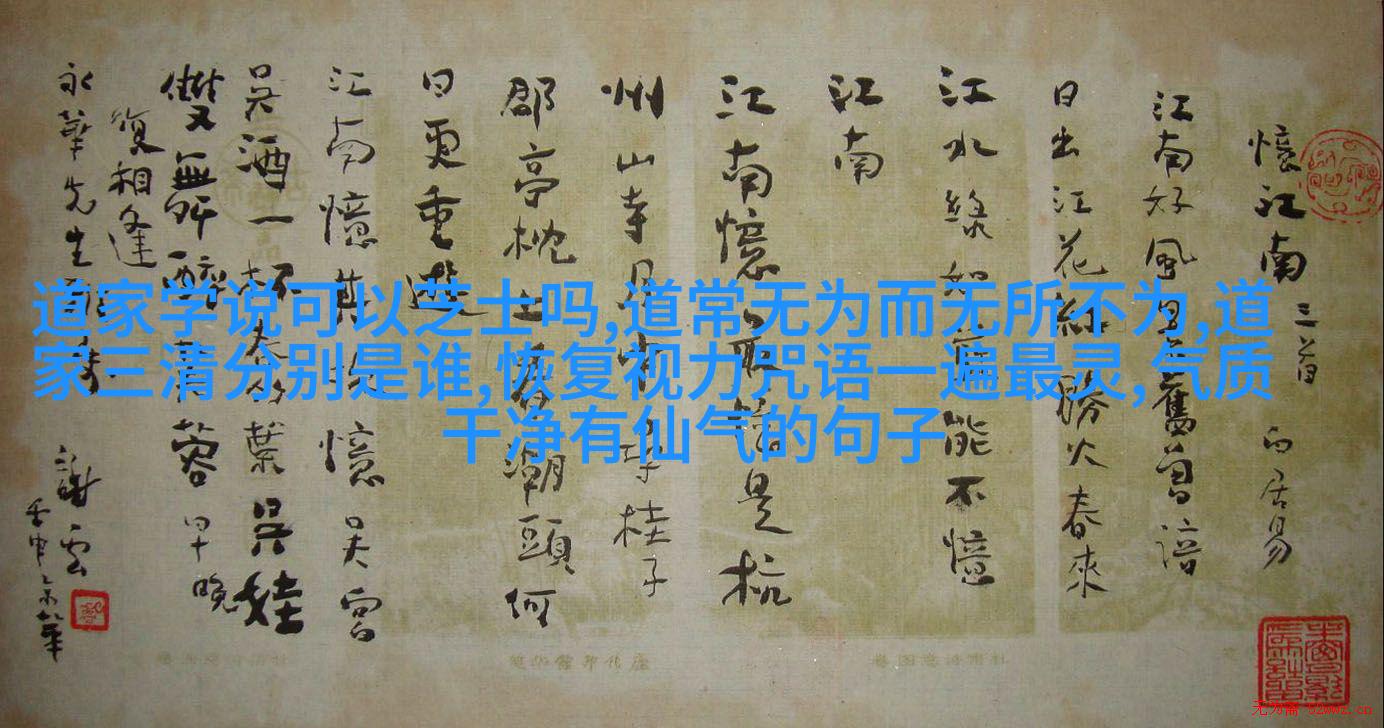 道家学说可以芝士吗,道常无为而无所不为,道
家三清分别是谁,恢复视力咒语一遍最灵,气质
干净有仙气的句子
憶江南 三首 白居易
江南好風景舊曾諳
日出江花紅勝火春來
江水綠如藍能不憶
江南
江南憶最憶是杭
州山寺月中尋桂子
郡亭枕上看潮頭何
日更重遊
江南憶其次憶吳宮
吳酒一杯春竹葉吳娃
雙舞醉芙蓉早晚
復相逢
永華先生
謝雲
壬申京華
无为斋 52wwz.cn